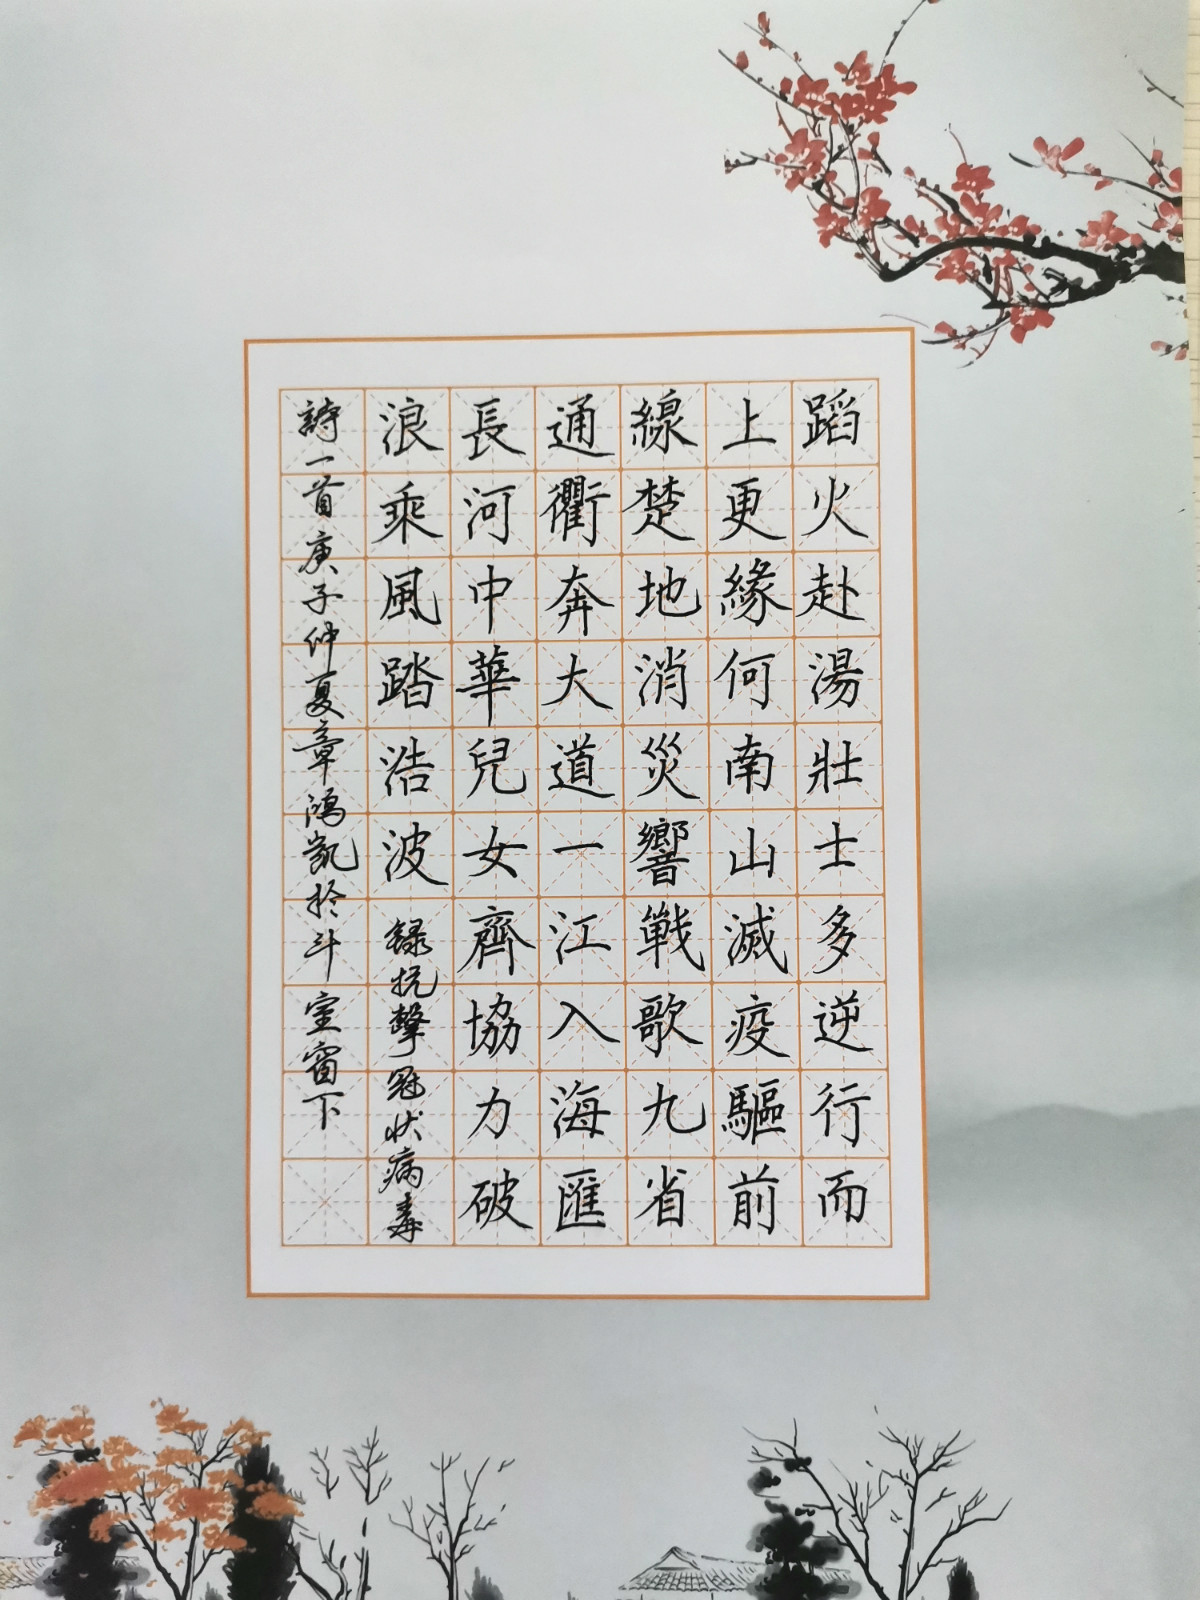 蹈火赴湯壯士多逆行而
上更緣何南山滅疫驅前
線楚地消災響戰歌九省
通衢奔大道一江入海匯
長河中華兒女齊協力破
浪乘風踏浩波 録抗擊冠狀病毒
詩一首庚子仲夏章鴻凱於斗室窗下